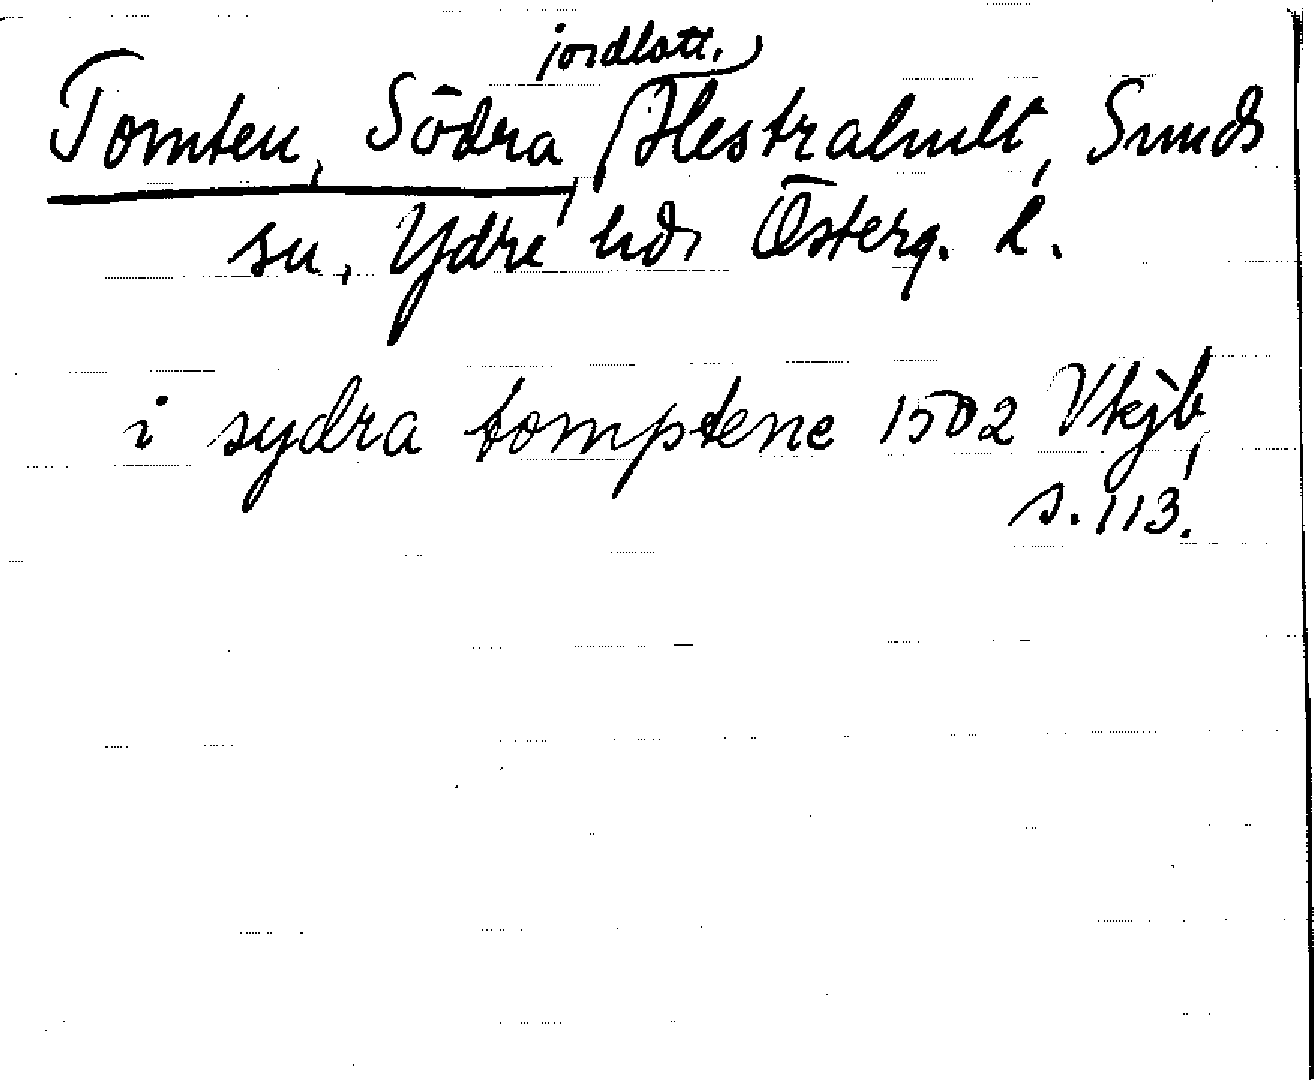 jordlott,
Tomten, Södra, Hestrahult, Sunds
sn, Ydre hd, Österg. l.
i sydra tomptene 1502 Vkjb,
s. 113.